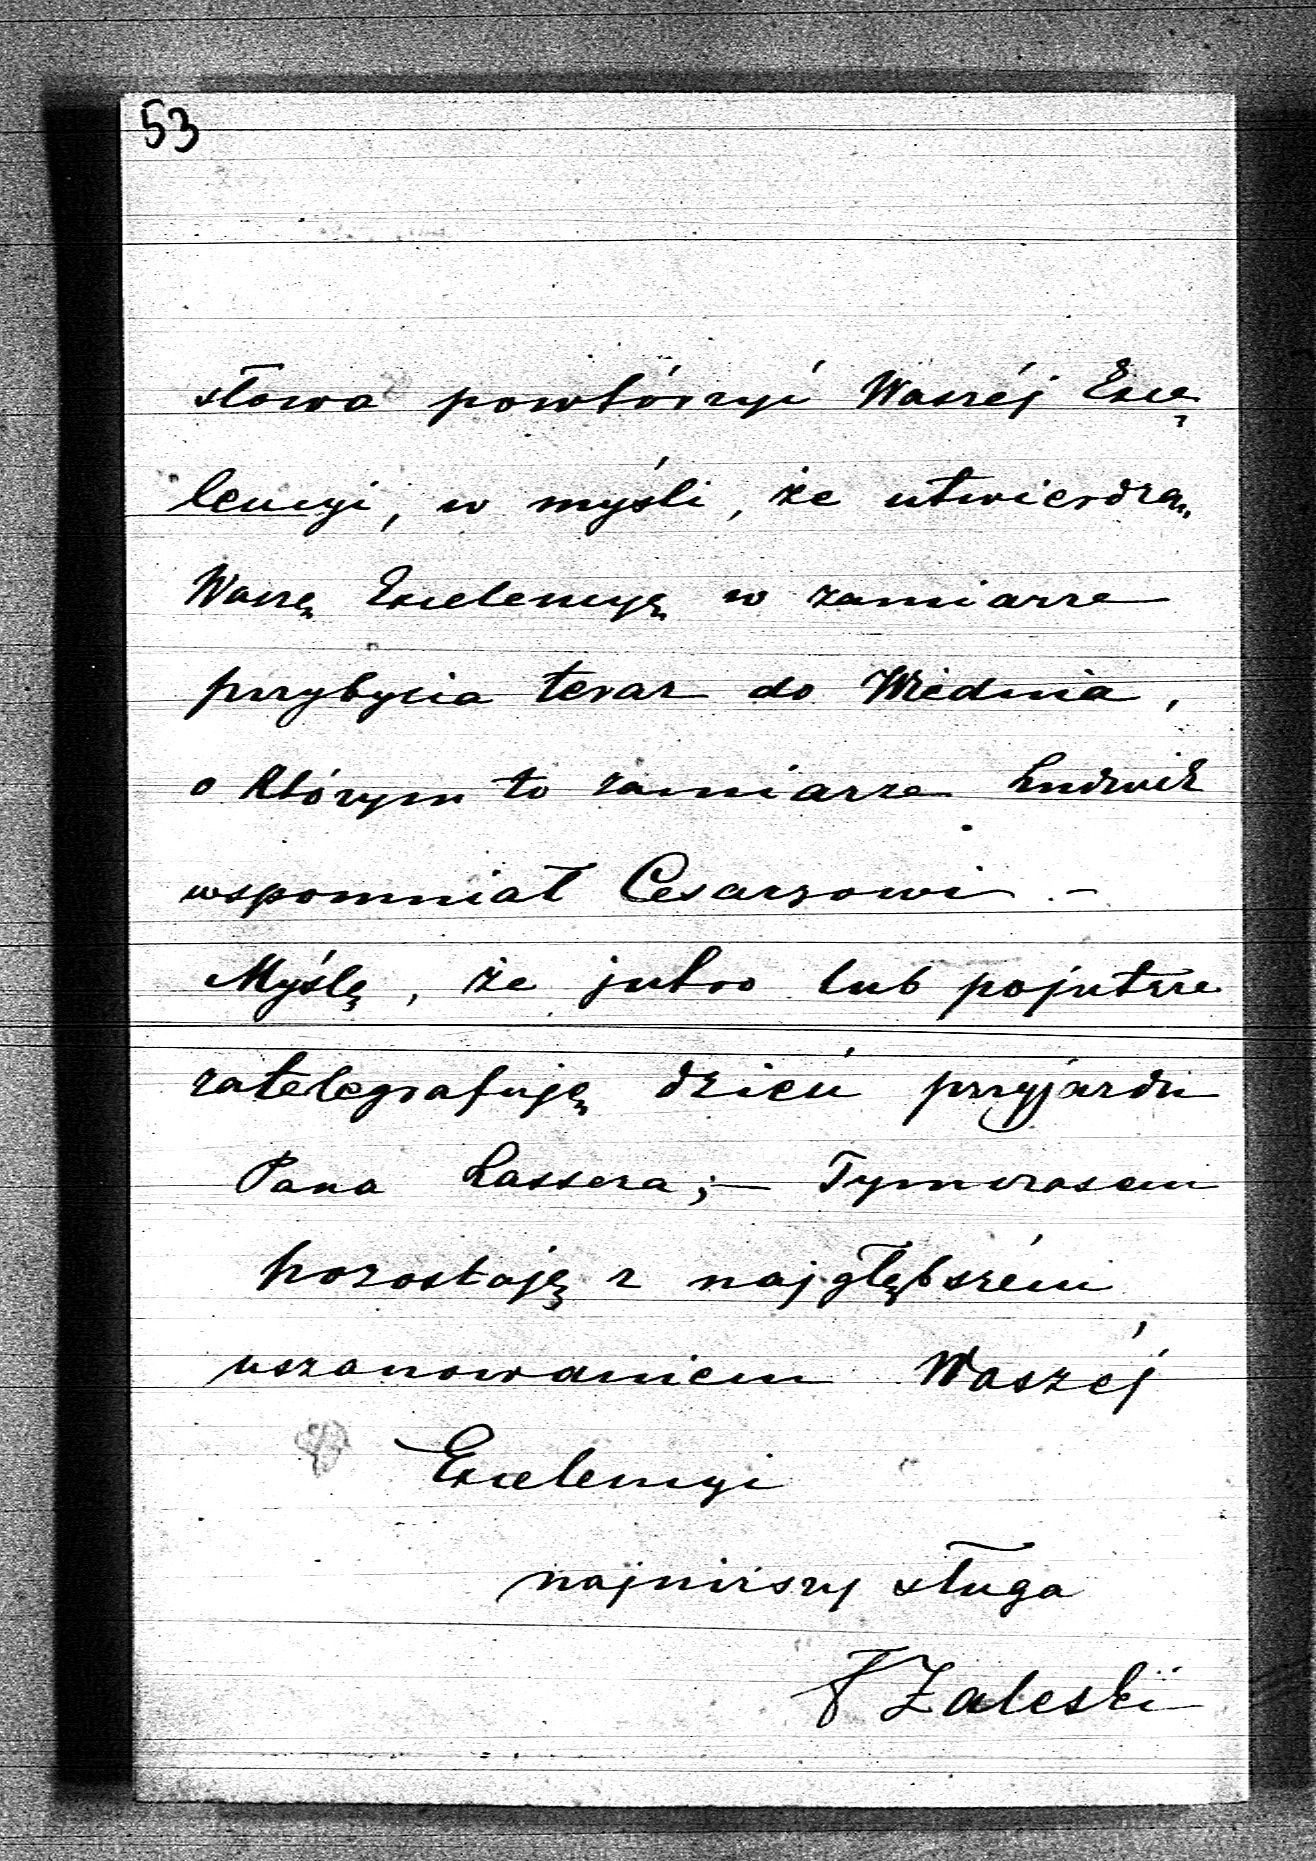 53
słowa powtórzyć Waszéj Exce
lencyi, w myśli, że utwierdzam
Waszę Excelencyę w zamiarze
przybycia teraz do Wiednia,
o którym to zamiarze Ludwik
wspomniał Cesarzowi. -
Myślę, że jutro lub pojutrze
zatelegrafuję dzień przyjazdu
Pana Lassera; - Tymczasem
pozostaję z najgłębszém
uszanowaniem Waszéj
Excelencyi
najniższy sługa
F Zaleski